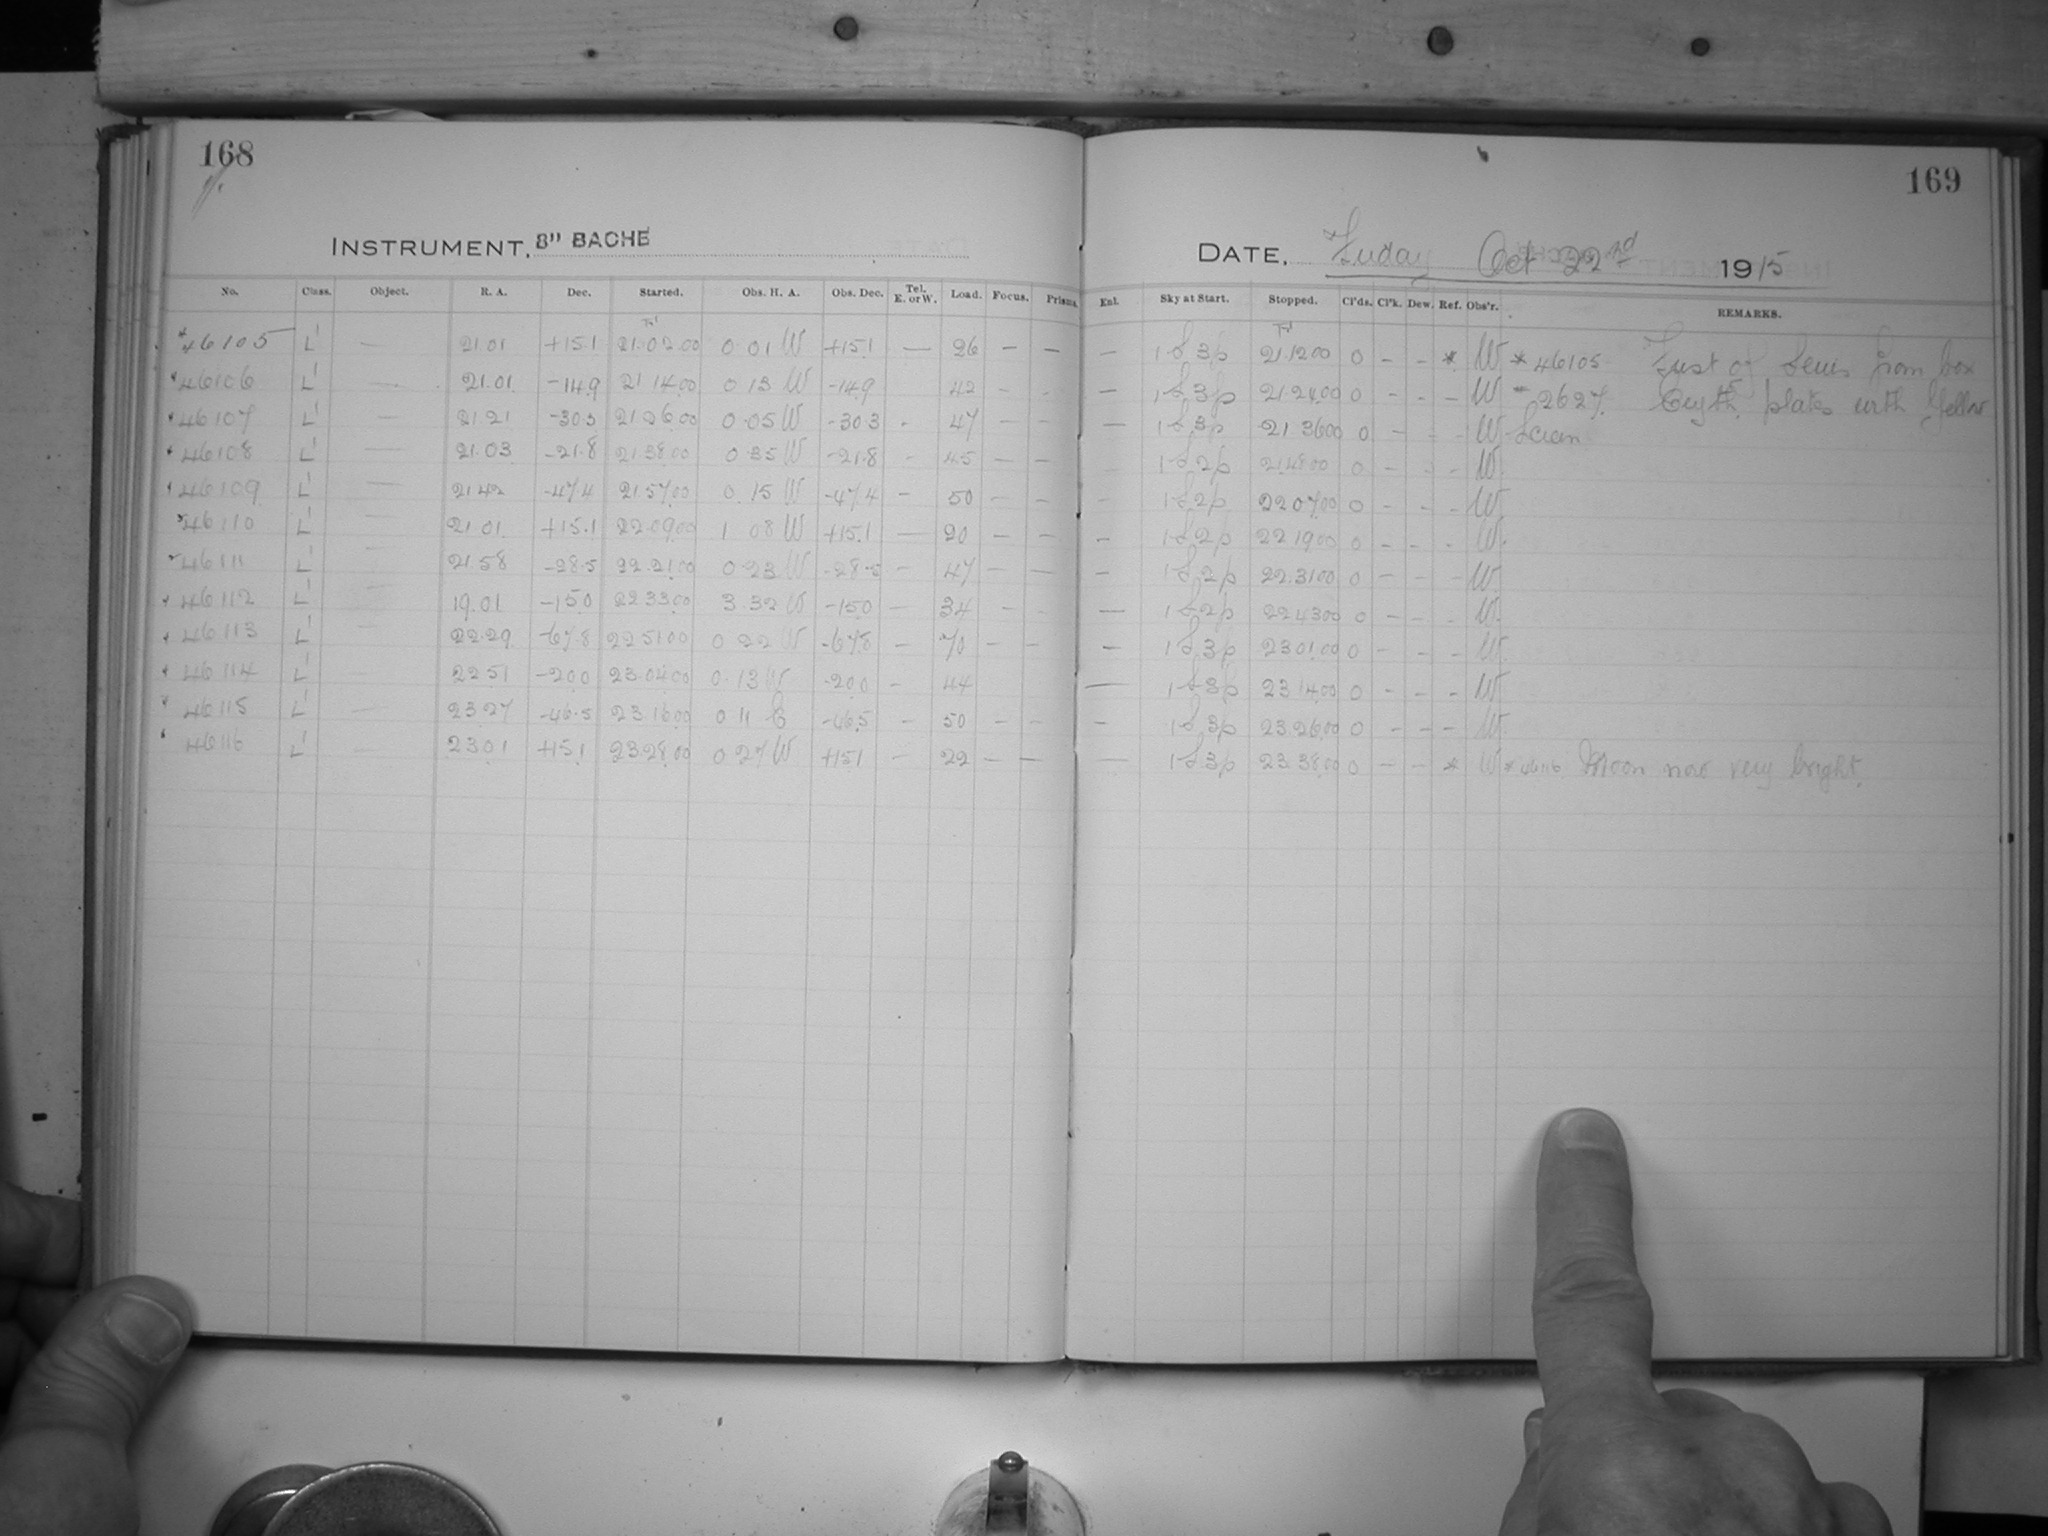 168
169
INSTRUMENT, 8" BACHE
DATE, Friday Oct 22nd 1915
No. Class. Object. R. A. Dec. Started. Obs. H. A. Obs. Dec. Tel. E. or W. Load. Focus. Prisms. Enl. Sky at Start. Stopped. Cl'ds. Cl'k. Dew. Ref. Obs'r. REMARKS.
*46105 L' — 21.01 +15.1 21.02.00 0.01 W +15.1 — 26 — — — 1 S 3 p 21.12.00 0 - - * W * 46105 First of Series from box
46106 L' — 21.01 -14.9 21.14.00 0 13 W -14.9 42 - - — 1 S 3 p 21.24.00 0 - - - W 2627. plates with Yellow
46107 L' — 21.21 -30.3 21.26.00 0.05 W -30.3 - 47 - - — 1 S 3 p 21.36.00 0 - - - W Screen
46108 L' — 21.03 -21.8 21.38.00 0.35 W -21.8 - 45 - - 1 S 2 p 21.48.00 0 - - - W.
46109 L' — 21.42 -47.4 21.57.00 0.15 W -47.4 - 50 - - - 1 S 2 p 22.07.00 0 - - - W.
46110 L' — 21.01 +15.1 22.09.00 1 08 W +15.1 — 20 - - - 1 S 2 p 22.19.00 0 - - - W.
46111 L' — 21.58 -28.5 22.21.00 0.23 W -28.5 - 47 - - - 1 S 2 p 22.31.00 0 - - - W
46112 L' 19.01 -15.0 22.33.00 3.32 W -15.0 — 34 - - — 1 S 2 p 22.43.00 0 - - - W.
46113 L' 22.29 -67.8 22.51.00 0 22 W -67.8 - 70 - - — 1 S 3 p 23.01.00 0 - - - W.
46114 L' — 22.51 -20.0 23.04.00 0.13 W -20.0 - 44 — 1 S 3 p 23.14.00 0 - - - W
46115 L' — 23.27 -46.5 23.16.00 0 11 E -46.5 - 50 - - - 1 S 3 p 23.26.00 0 - - - W.
46116 L' — 23.01 +15.1 23.28.00 0 27 W +15.1 - 22 - - — 1 S 3 p 23.38.00 0 - - * W * 46116 Moon now very bright.